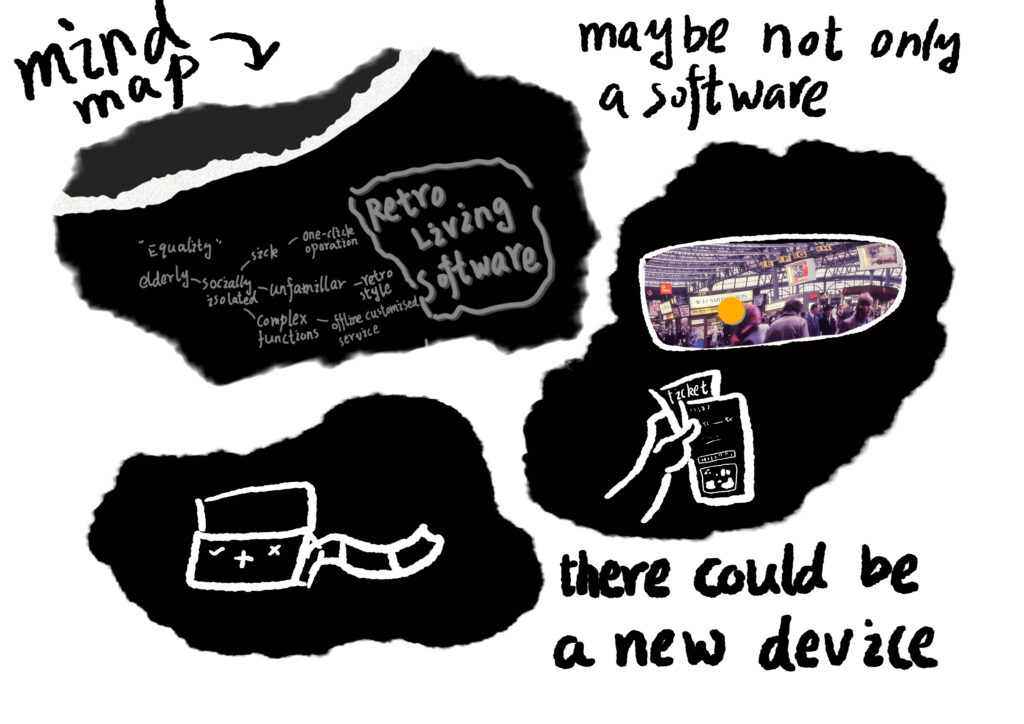 mind
map
maybe not only
a software
Retro
Living
Software
"Equality"
elderly
socially
isolated
sick
one-click
operation
unfamillar
retro
style
complex
functions
offline customised
service
W·H·SMITH
ticket
there could be
a new device